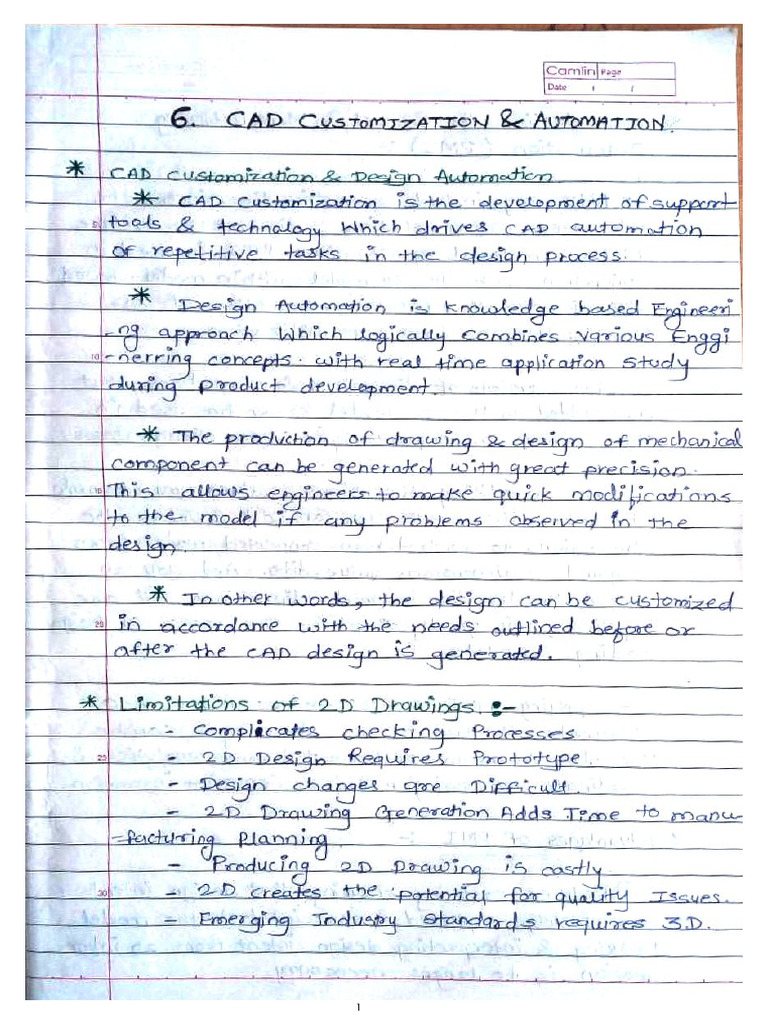 Camlin Page
Date / /
6. CAD CUSTOMIZATION & AUTOMATION.
* CAD Customization & Design Automation
* CAD Customization is the development of support
5 tools & technology Which drives CAD automation
of repetitive tasks in the design process.
* Design Automation is knowledge based Engineeri
-ng approach Which logically combines various Enggi
10 -nerring concepts. with real time application study
during product development.
* The production of drawing & design of mechanical
component can be generated with great precision.
15 This allows engineers to make quick modifications
to the model if any problems observed in the
design.
* In other words, the design can be customized
20 in accordance with the needs outlined before or
after the CAD design is generated.
* Limitations of 2D Drawings :-
- Complicates checking Processes
25 - 2D Design Requires Prototype.
- Design changes are Difficult.
- 2D Drawing Generation Adds Time to manu
-facturing Planning.
- Producing 2D Drawing is costly
30 - 2D creates the potential for quality Issues.
- Emerging Industry standards requires 3.D.
1